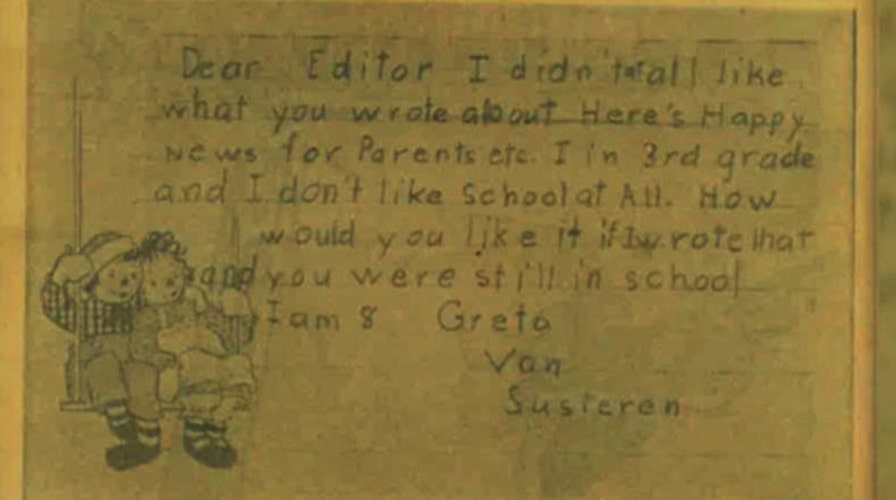 Dear Editor I didn't at all like
what you wrote about Here's Happy
News for Parents etc. I in 3rd grade
and I don't like School at All. How
would you like it if I wrote that
and you were still in school
I am 8 Greta
Van
Susteren